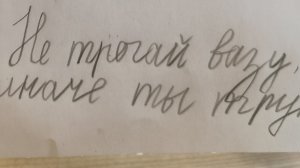 Не трогай вазу,
иначе ты